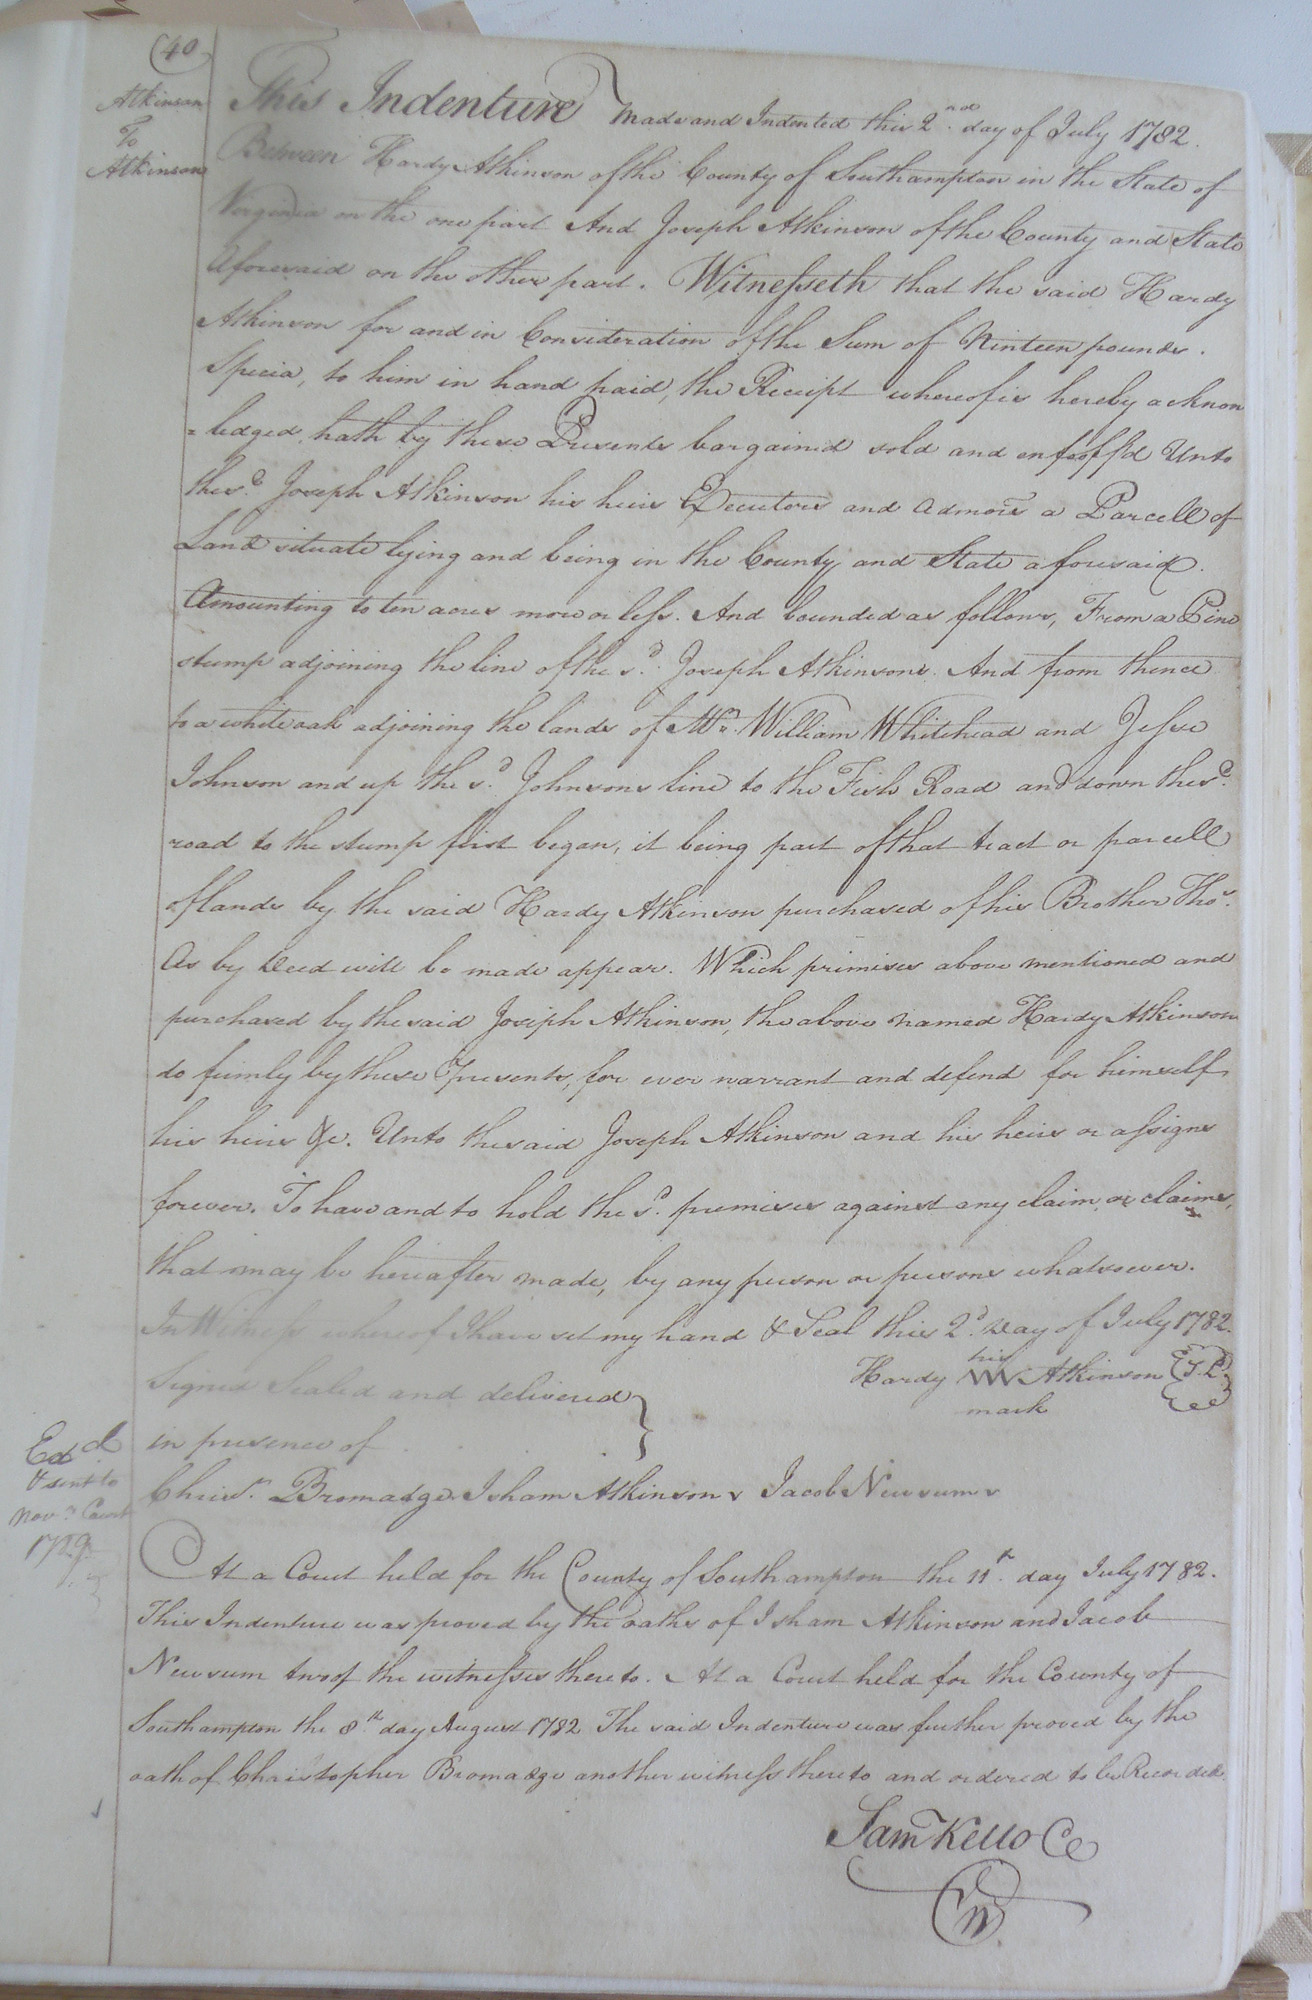 (40
Atkinson
To
Atkinson
This Indenture Made and Indented this 2nd day of July 1782.
Between Hardy Atkinson of the County of Southampton in the State of
Virginia on the one part And Joseph Atkinson of the County and State
Aforesaid on the other part. Witnesseth that the said Hardy
Atkinson for and in Consideration of the Sum of Ninteen pounds.
Specia, to him in hand paid, the Receipt whereof is hereby acknow
=ledged, hath by these Presents bargained sold and enfeoff'd Unto
the sd. Joseph Atkinson his heirs Executors and Admors a Parcell of
Land situate lying and being in the County and State aforesaid.
Amounting to ten acres more or less. And bounded as follows, From a Pine
stump adjoining the line of the sd. Joseph Atkinsons. And from thence
to a white oak adjoining the lands of Mr. William Whitehead and Jesse
Johnson and up the sd. Johnsons line to the Fish Road and down the sd.
road to the stump first began, it being part of that tract or parcell
of lands by the said Hardy Atkinson purchased of his Brother Thos.
As by Deed will be made appear. Which primises above mentioned and
purchased by the said Joseph Atkinson, the above named Hardy Atkinson
do firmly by these Presents, for ever warrant and defend for himself
his heirs &c. Unto the said Joseph Atkinson and his heirs or assigns
forever. To have and to hold the sd. premises against any claim, or claims,
that may be hereafter made, by any person or persons whatsoever.
In Witness whereof I have set my hand & Seal this 2d. Day of July 1782.
Signed Sealed and delivered
in presence of
Hardy his Atkinson L.S.
mark
Chrisr. Bromadge Isham Atkinson Jacob Newsum
Exd
& sent to
Novr. Court
At a Court held for the County of Southampton the 11th. day July 1782.
This Indenture was proved by the oaths of Isham Atkinson and Jacob
Newsum two of the witnesses thereto. At a Court held for the County of
Southampton the 8th day August 1782 The said Indenture was further proved by the
oath of Christopher Bromadge another witness thereto and ordered to be Recorded.
Sam Kello C